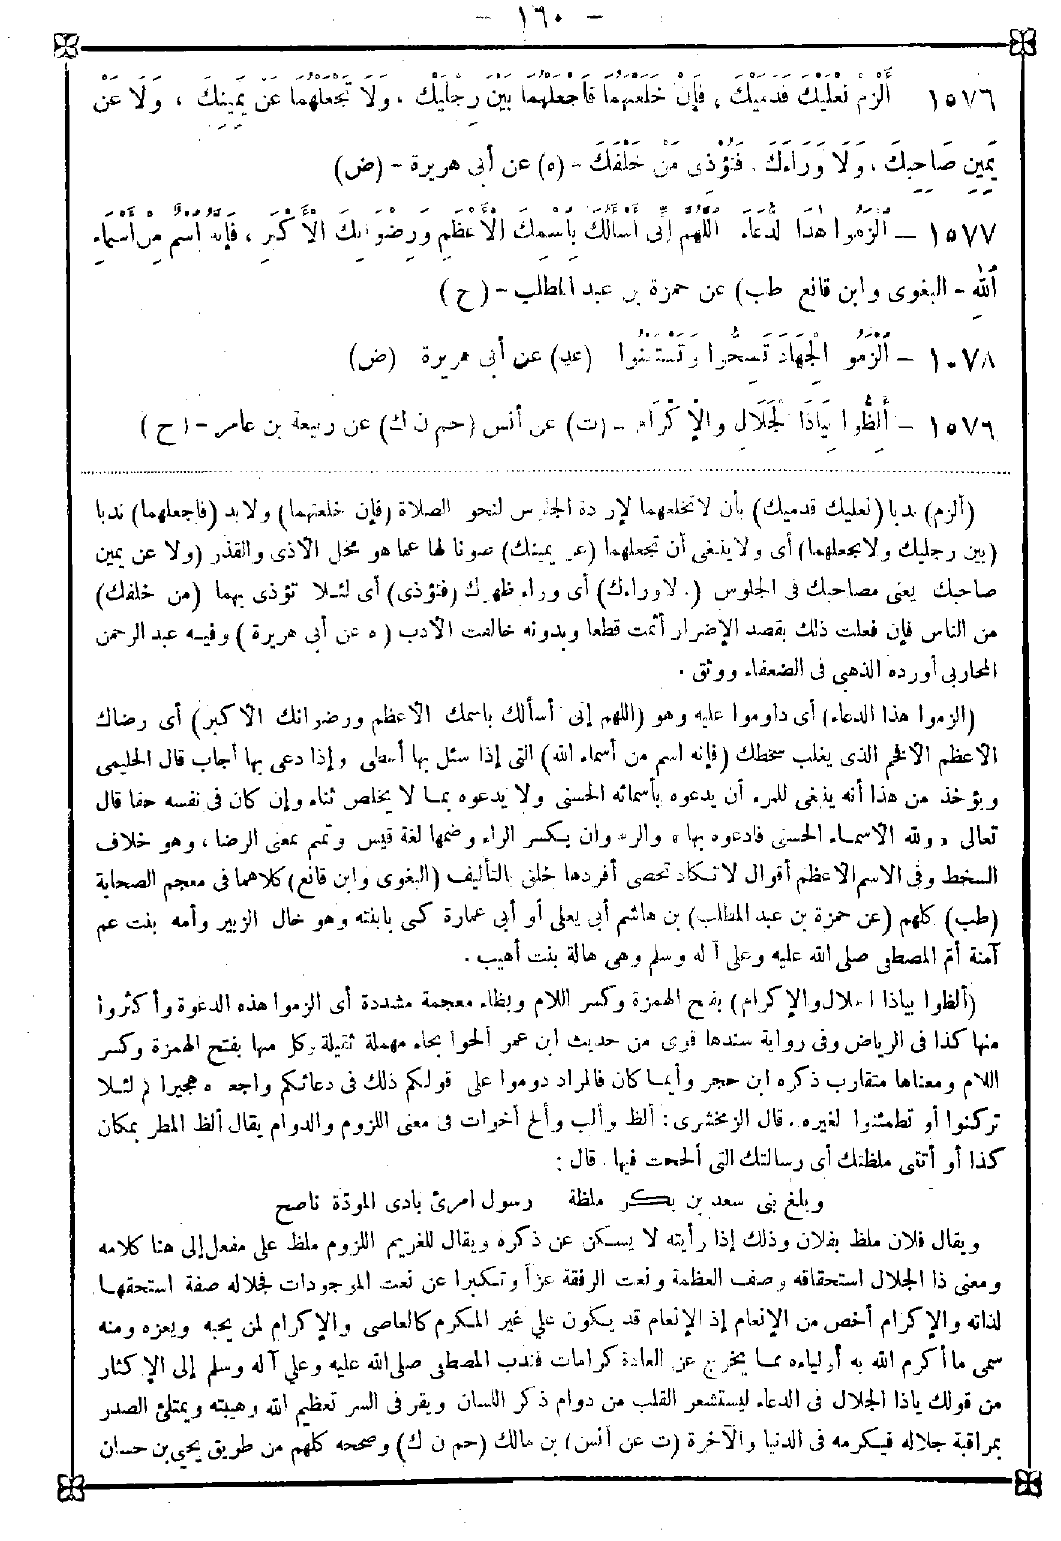 - ١٦٠ -
١٥٧٦ أَلْزِمْ نَعْلَيْكَ قَدَمَيْكَ ، فَإِنْ خَلَعْتَهُمَا فَاجْعَلْهُمَا بَيْنَ رِجْلَيْكَ ، وَلَا تَجْعَلْهُمَا عَنْ يَمِينِكَ ، وَلَا عَنْ
يَمِينِ صَاحِبِكَ ، وَلَا وَرَاءَكَ . فَتُؤْذِى مَنْ خَلْفَكَ - (ه) عن أبى هريرة - (ض)
١٥٧٧ - ٱلْزَمُوا هٰذَا الدُّعَاءَ اللّٰهُمَّ إِنِّى أَسْأَلُكَ بِاسْمِكَ الْأَعْظَمِ وَرِضْوَانِكَ الْأَكْبَرِ ، فَإِنَّهُ اسْمٌ مِنْ أَسْمَاءِ
اللّٰهِ - البغوى وابن قانع طب) عن حمزة بن عبد المطلب - (ح)
١٥٧٨ - ٱلْزَمُو الْجِهَادَ تَصِحُّوا وَتَسْتَغْنُوا (عد) عن أبى هريرة (ض)
١٥٧٩ - أَلِظُّوا بِيَاذَا الْجَلَالِ وَالْإِكْرَامِ - (ت) عن أنس (حم ن ك) عن ربيعة بن عامر - (ح)
(ألزم) ندبا (نعليك قدميك) بأن لاتخلعهما لإرادة الجلوس لنحو الصلاة (فإن خلعتهما) ولابد (فاجعلهما) ندبا
(بين رجليك ولاتجعلهما) أى ولاينبغى أن تجعلهما (عن يمينك) صونا لها عما هو محل الأذى والقذر (ولا عن يمين
صاحبك يعنى مصاحبك فى الجلوس (ولاوراءك) أى وراء ظهرك (فتؤذى) أى لئلا تؤذى بهما (من خلفك)
من الناس فإن فعلت ذلك بقصد الإضرار أثمت قطعا وبدونه خالفت الأدب (ه عن أبى هريرة) وفيه عبد الرحمن
المحاربى أورده الذهبى فى الضعفاء ووثق .
(الزموا هذا الدعاء) أى داوموا عليه وهو (اللهم إنى أسألك باسمك الأعظم ورضوانك الأكبر) أى رضاك
الأعظم الأفخم الذى يغلب سخطك (فإنه اسم من أسماء الله) التى إذا سئل بها أعطى وإذا دعى بها أجاب قال الحليمى
ويؤخذ من هذا أنه ينبغى للمرء أن يدعوه بأسمائه الحسنى ولا يدعوه بما لا يخلص ثناء وإن كان فى نفسه حقا قال
تعالى « ولله الأسماء الحسنى فادعوه بها » والرضوان بكسر الراء وضمها لغة قيس وتميم بمعنى الرضا ، وهو خلاف
السخط وفى الاسم الأعظم أقوال لاتكاد تحصى أفردها خلق بالتأليف (البغوى وابن قانع) كلاهما فى معجم الصحابة
(طب) كلهم (عن حمزة بن عبد المطلب) بن هاشم أبى يعلى أو أبى عمارة كنى بابنته وهو خال الزبير وأمه بنت عم
آمنة أم المصطفى صلى الله عليه وعلى آله وسلم وهى هالة بنت أهيب .
(ألظوا بياذا الجلال والإكرام) بفتح الهمزة وكسر اللام وبظاء معجمة مشددة أى الزموا هذه الدعوة وأكثروا
منها كذا فى الرياض وفى رواية سندها قوى من حديث ابن عمر ألحوا بحاء مهملة ثقيلة وكل منها بفتح الهمزة وكسر
اللام ومعناها متقارب ذكره ابن حجر وأيما كان فالمراد دوموا على قولكم ذلك فى دعائكم واجعلوه هجيراكم لئلا
تركنوا أو تطمئنوا لغيره . قال الزمخشرى : ألظ وألب وألح أخوات فى معنى اللزوم والدوام يقال ألظ المطر بمكان
كذا أو أتتنى ملظتك أى رسالتك التى ألححت فيها . قال :
وبلغ بنى سعد بن بكر ملظة رسول امرئ بادى المودّة ناصح
ويقال فلان ملظ بفلان وذلك إذا رأيته لا يسكن عن ذكره ويقال للغريم اللزوم ملظ على مفعل إلى هنا كلامه
ومعنى ذا الجلال استحقاقه وصف العظمة ونعت الرفقة عزاً وتكبرا عن نعت الموجودات فجلاله صفة استحقها
لذاته والإكرام أخص من الإنعام إذ الإنعام قد يكون على غير المكرم كالعاصى والإكرام لمن يحبه ويعزه ومنه
سمى ما أكرم الله به أولياءه مما يخرج عن العادة كرامات فندب المصطفى صلى الله عليه وعلي آله وسلم إلى الإكثار
من قولك ياذا الجلال فى الدعاء ليستشعر القلب من دوام ذكر اللسان ويقر فى السر تعظيم الله وهيبته ويمتلئ الصدر
بمراقبة جلاله فيكرمه فى الدنيا والآخرة (ت عن أنس) بن مالك (حم ن ك) وصححه كلهم من طريق يحيى بن حسان